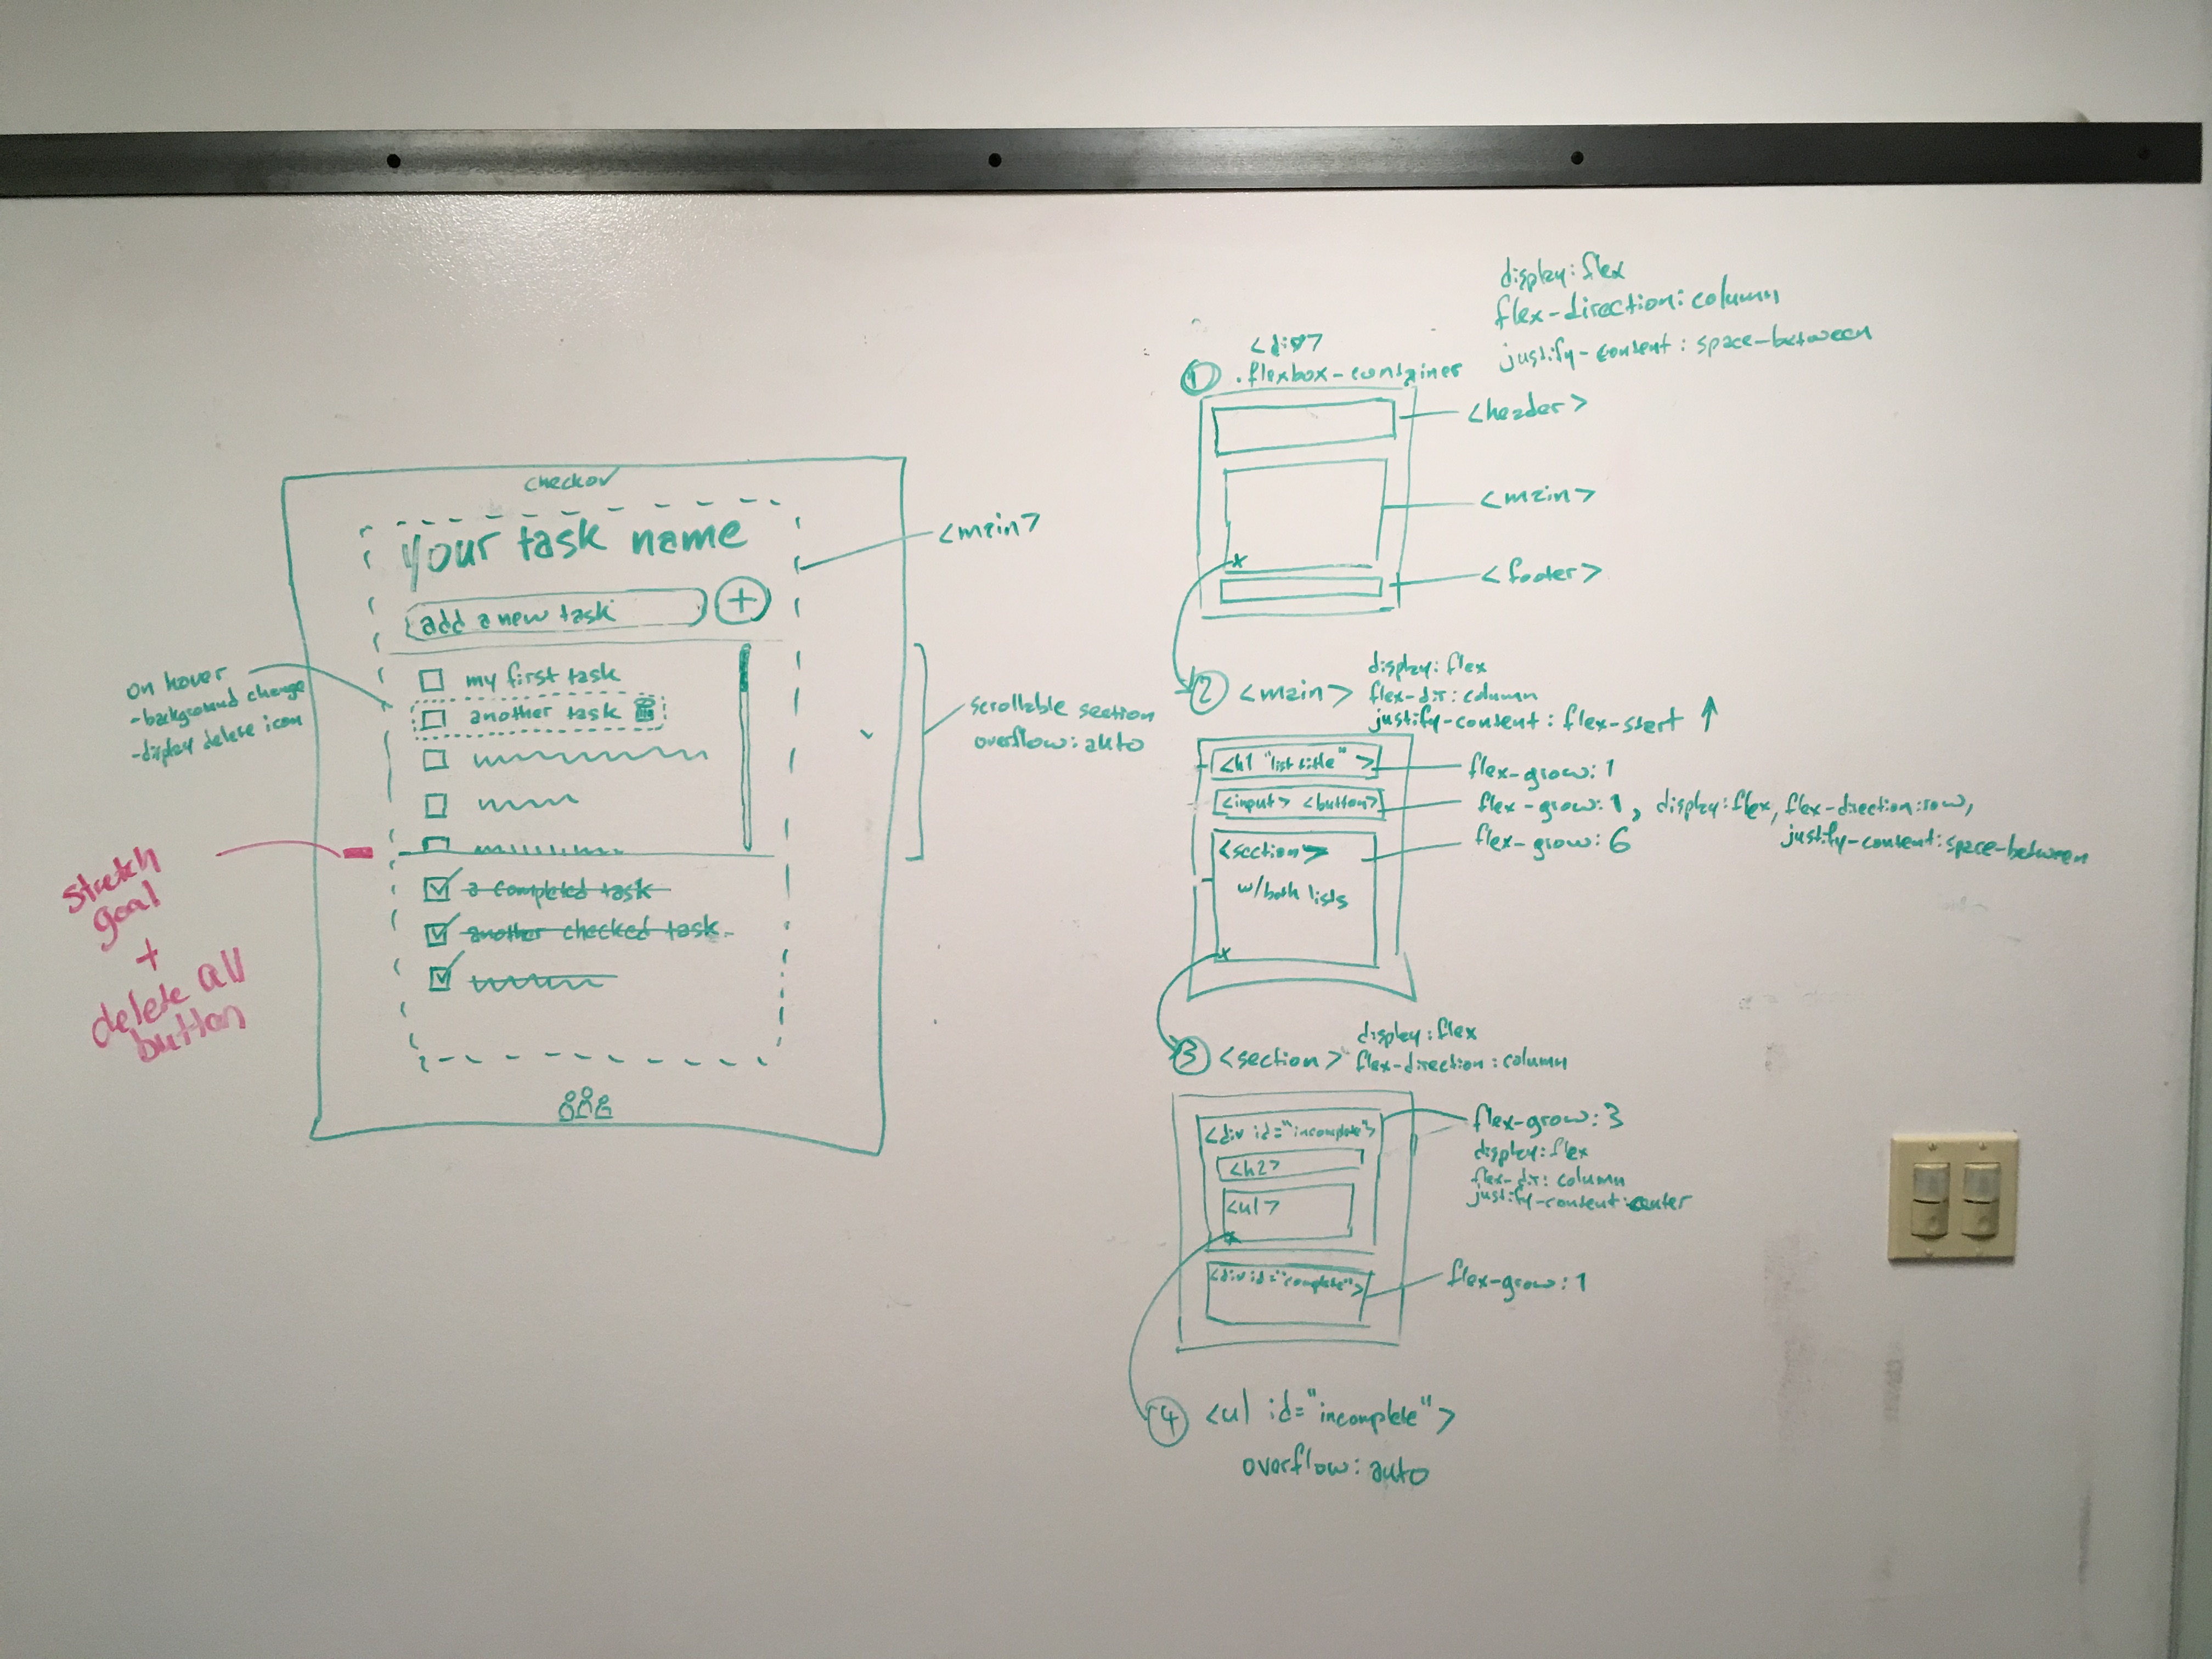 checkov
your task name
add a new task +
my first task
another task
a completed task
another checked task
<main>
on hover
-background change
-display delete icon
scrollable section
overflow: auto
stretch
goal
+
delete all
button
display: flex
flex-direction: column
justify-content: space-between
1 <div>
.flexbox-container
<header>
<main>
<footer>
2 <main>
display: flex
flex-dir: column
justify-content: flex-start ↑
<h1 "list title" >
flex-grow: 1
<input> <button>
flex-grow: 1, display: flex, flex-direction: row,
justify-content: space-between
<section>
w/both lists
flex-grow: 6
3 <section>
display: flex
flex-direction: column
<div id="incomplete">
<h2>
<ul>
flex-grow: 3
display: flex
flex-dir: column
justify-content: center
<div id="complete">
flex-grow: 1
4 <ul id="incomplete">
overflow: auto